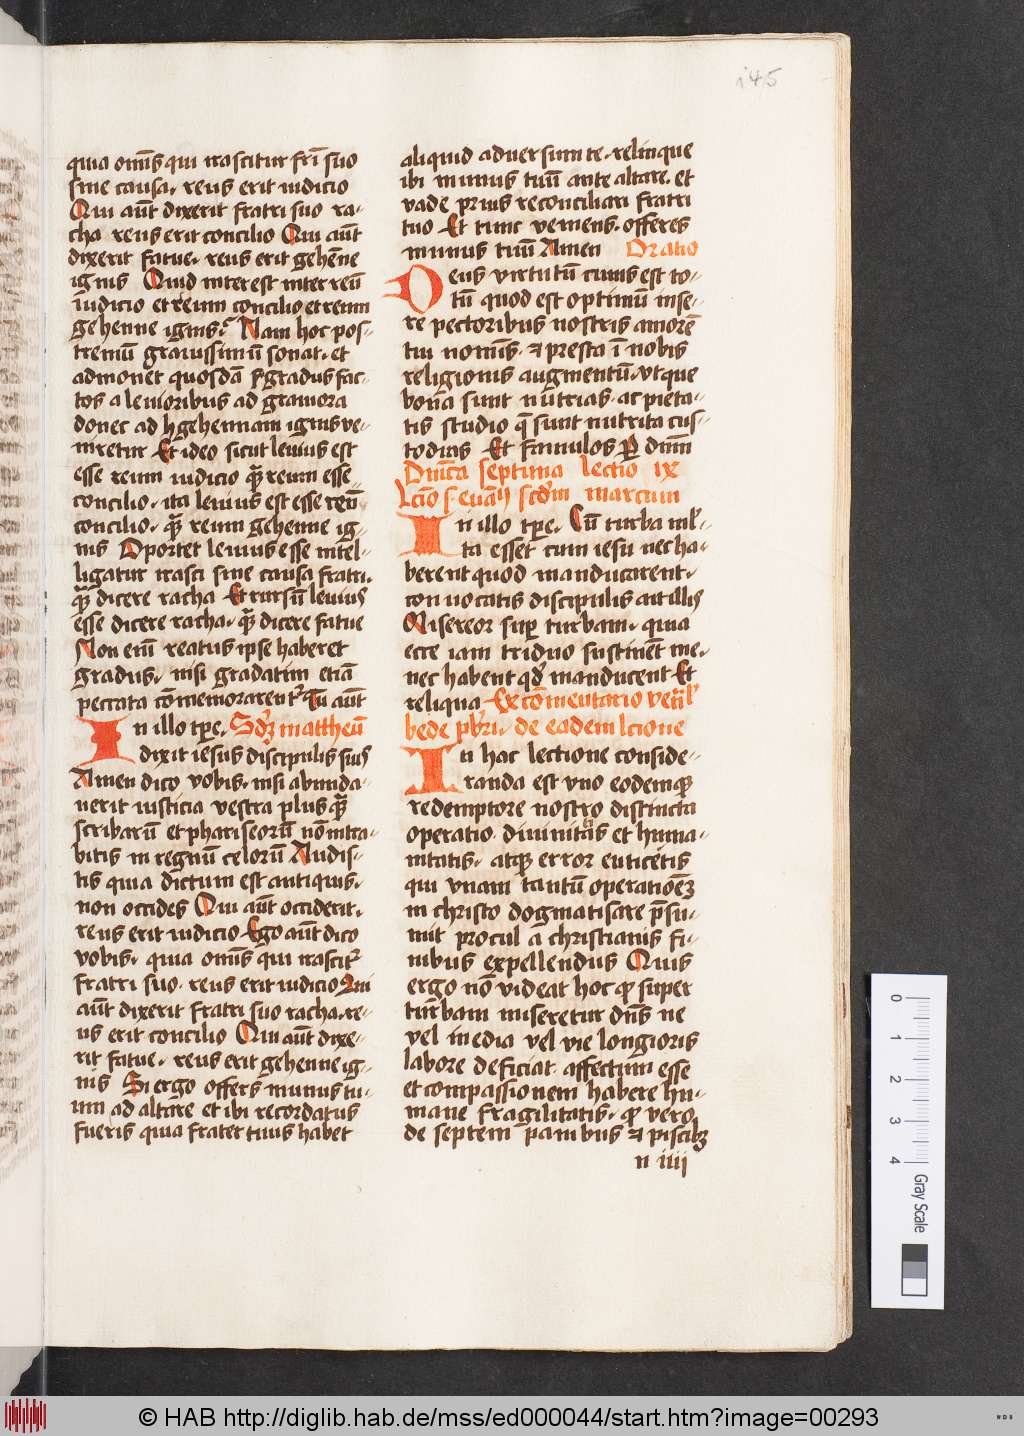 145
quia om̄is qui irascitur fr̄i suo
sine causa, reus erit iudicio
Qui aūt dixerit fratri suo ra-
cha reus erit concilio Qui aūt
dixerit fatue, reus erit gehēne
ignis Quid interest inter reū
iudicio et reum concilio et reum
gehenne ignis? Nam hoc pos-
tremū grauissimū sonat, et
admonet quosdā gradus fac-
tos a leuioribus ad grauiora
donec ad gehennam ignis ve-
niretur Et ideo sicut leuius est
esse reum iudicio quā reum esse
concilio, ita leuius est esse reū
concilio, quā reum gehenne ig-
nis Oportet leuius esse intel-
ligatur irasci sine causa fratri,
quā dicere racha Et rursū leuius
esse dicere racha, quā dicere fatue
Non enī reatus ipse haberet
gradus, nisi gradatim etiā
peccata cōmemorarent᷑ Qui aūt
In illo tp̄e, Scd̄ꝫ mattheū
dixit iesus discipulis suis
Amen dico vobis, nisi abunda-
uerit iusticia vestra plus quā
scribarū et phariseorū nō intra-
bitis in regnū celorū Audis-
tis quia dictum est antiquis,
non occides Qui aūt occiderit,
reus erit iudicio Ego aūt dico
vobis, quia om̄is qui irascit᷑
fratri suo, reus erit iudicio Qui
aūt dixerit fratri suo racha, re-
us erit concilio Qui aūt dixe-
rit fatue, reus erit gehenne ig-
nis Si ergo offers munus tu-
um ad altare et ibi recordatus
fueris quia frater tuus habet
aliquid aduersum te, relinque
ibi munus tuū ante altare, et
vade prius reconciliari fratri
tuo Et tunc veniens, offeres
munus tuū Amen Oratio
Deus virtutū cuius est to-
tū quod est optimū inse-
re pectoribus nostris amorē
tui nominis, ⁊ presta ī nobis
religionis augmentū, vt que
bona sunt nutrias, ac pieta-
tis studio q̄ sunt nutrita cus-
todias Et famulos P dnm̄
Dn̄ica septima lectio ix
Lc̄io s. euāḡ scd̄m marcum
In illo tp̄e, Cū turba ml̄-
ta esset cum iesu nec ha-
berent quod manducarent,
conuocatis discipulis ait illis
Misereor suꝑ turbam, quia
ecce iam triduo sustinēt me,
nec habent qd̄ manducent Et
reliqua Ex cōmentario ven̄l̄
bede pb̄ri, de eadem lectione
In hac lectione conside-
randa est vno eodemqꝫ
redemptore nostro distincta
operatio diuinitatis et huma-
nitatis, atqꝫ error euticetis
qui vnam tantū operationēꝫ
in christo dogmatisare p̄su-
mit procul a christianis fi-
nibus expellendus Quis
ergo nō videat hoc qꝫ super
turbam miseretur dn̄s ne
vel inedia vel vie longioris
labore deficiat, affectum esse
et compassionem habere hu-
mane fragilitatis, qꝫ vero,
de septem panibus ⁊ piscibꝫ
n iiij
0 1 2 3 4
Gray Scale
© HAB http://diglib.hab.de/mss/ed000044/start.htm?image=00293